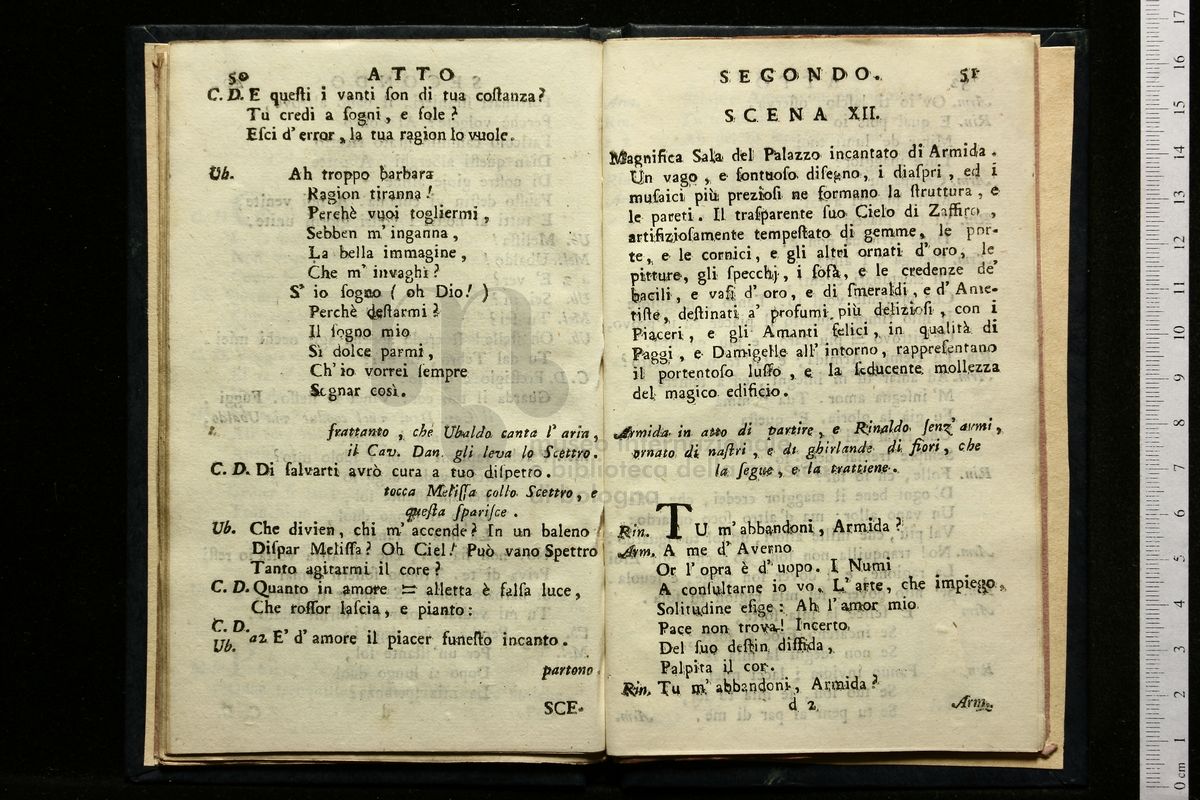 50 ATTO
C. D. E queſti i vanti ſon di tua coſtanza?
Tu credi a ſogni, e fole?
Eſci d'error, la tua ragion lo vuole.
Ub. Ah troppo barbara
Ragion tiranna!
Perchè vuoi togliermi,
Sebben m'inganna,
La bella immagine,
Che m'invaghì?
S'io ſogno (oh Dio!)
Perchè deſtarmi?
Il ſogno mio
Sì dolce parmi,
Ch'io vorrei ſempre
Sognar così.
frattanto, che Ubaldo canta l'aria,
il Cav. Dan. gli leva lo Scettro.
C. D. Di ſalvarti avrò cura a tuo diſpetto.
tocca Meliſſa collo Scettro, e
queſta ſpariſce.
Ub. Che divien, chi m'accende? In un baleno
Diſpar Meliſſa? Oh Ciel! Può vano Spettro
Tanto agitarmi il core?
C. D. Quanto in amore = alletta è falſa luce,
Che roſſor laſcia, e pianto:
C. D.
Ub. a2 E' d'amore il piacer funeſto incanto.
partono.
SCE-
SECONDO. 51
SCENA XII.
Magnifica Sala del Palazzo incantato di Armida.
Un vago, e ſontuoſo diſegno, i diaſpri, ed i
muſaici più prezioſi ne formano la ſtruttura, e
le pareti. Il traſparente ſuo Cielo di Zaffiro,
artifizioſamente tempeſtato di gemme, le por-
te, e le cornici, e gli altri ornati d'oro, le
pitture, gli ſpecchj, i ſofà, e le credenze de'
bacili, e vaſi d'oro, e di ſmeraldi, e d'Ame-
tiſte, deſtinati a' profumi più delizioſi, con i
Piaceri, e gli Amanti felici, in qualità di
Paggi, e Damigelle all'intorno, rappreſentano
il portentoſo luſſo, e la ſeducente mollezza
del magico edificio.
Armida in atto di partire, e Rinaldo ſenz'armi,
ornato di naſtri, e di ghirlande di fiori, che
la ſegue, e la trattiene.
Rin. TU m'abbandoni, Armida?
Arm. A me d'Averno
Or l'opra è d'uopo. I Numi
A conſultarne io vo. L'arte, che impiego,
Solitudine eſige: Ah l'amor mio
Pace non trova! Incerto
Del ſuo deſtin diffida,
Palpita il cor.
Rin. Tu m'abbandoni, Armida?
d 2 Arm.
museo internazionale
biblioteca della musica
bologna
0 cm 1 2 3 4 5 6 7 8 9 10 11 12 13 14 15 16 17